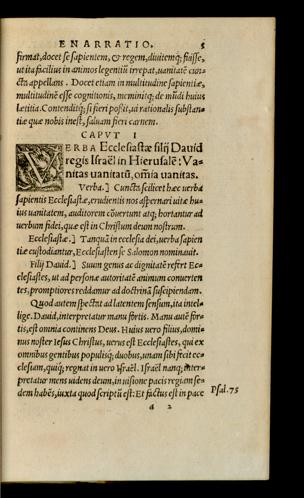 ENARRATIO. 5
firmat, docet se sapientem, & regem, divitemq; fuisse,
ut ita facilius in animos legentiũ irrepat, uanitatẽ cun-
cta appellans. Docet etiam in multitudine sapientiæ,
multitudinẽ esse cognitionis, meminitq; de mũdi huius
lætitia. Contenditq; si fieri possit, ui rationalis substan-
tiæ quæ nobis inest, saluam fieri carnem.
CAPVT I
VERBA Ecclesiastæ filij Dauid
regis Israël in Hierusalẽ: Va-
nitas uanitatũ, omĩa uanitas.
Verba.] Cuncta scilicet hæc uerba
sapientis Ecclesiastæ, erudientis nos aspernari uitæ hu-
ius uanitatem, auditorem cõuertunt atq; hortantur ad
uerbum fidei, quæ est in Christum deum nostrum.
Ecclesiastæ.] Tanquã in ecclesia dei, uerba sapien
tiæ custodiantur, Ecclesiasten se Salomon nominauit.
Filij Dauid.] Suum genus ac dignitatẽ refert Ec-
clesiastes, ut ad personæ autoritatẽ animum conuerten
tes, promptiores reddamur ad doctrinã suscipiendam.
Quod autem spectat ad latentem sensum, ita intel-
lige. Dauid, interpretatur manu fortis. Manu autẽ for-
tis, est omnia continens Deus. Huius uero filius, domi-
nus noster Iesus Christus, uerus est Ecclesiastes, qui ex
omnibus gentibus populisq; duobus, unam sibi fecit ec-
clesiam, quiq; regnat in uero Israël. Israël nanq; inter-
pretatur mens uidens deum, in uisione pacis regiam se-
dem habẽs, iuxta quod scriptũ est: Et factus est in pace
Psal. 75
d 2